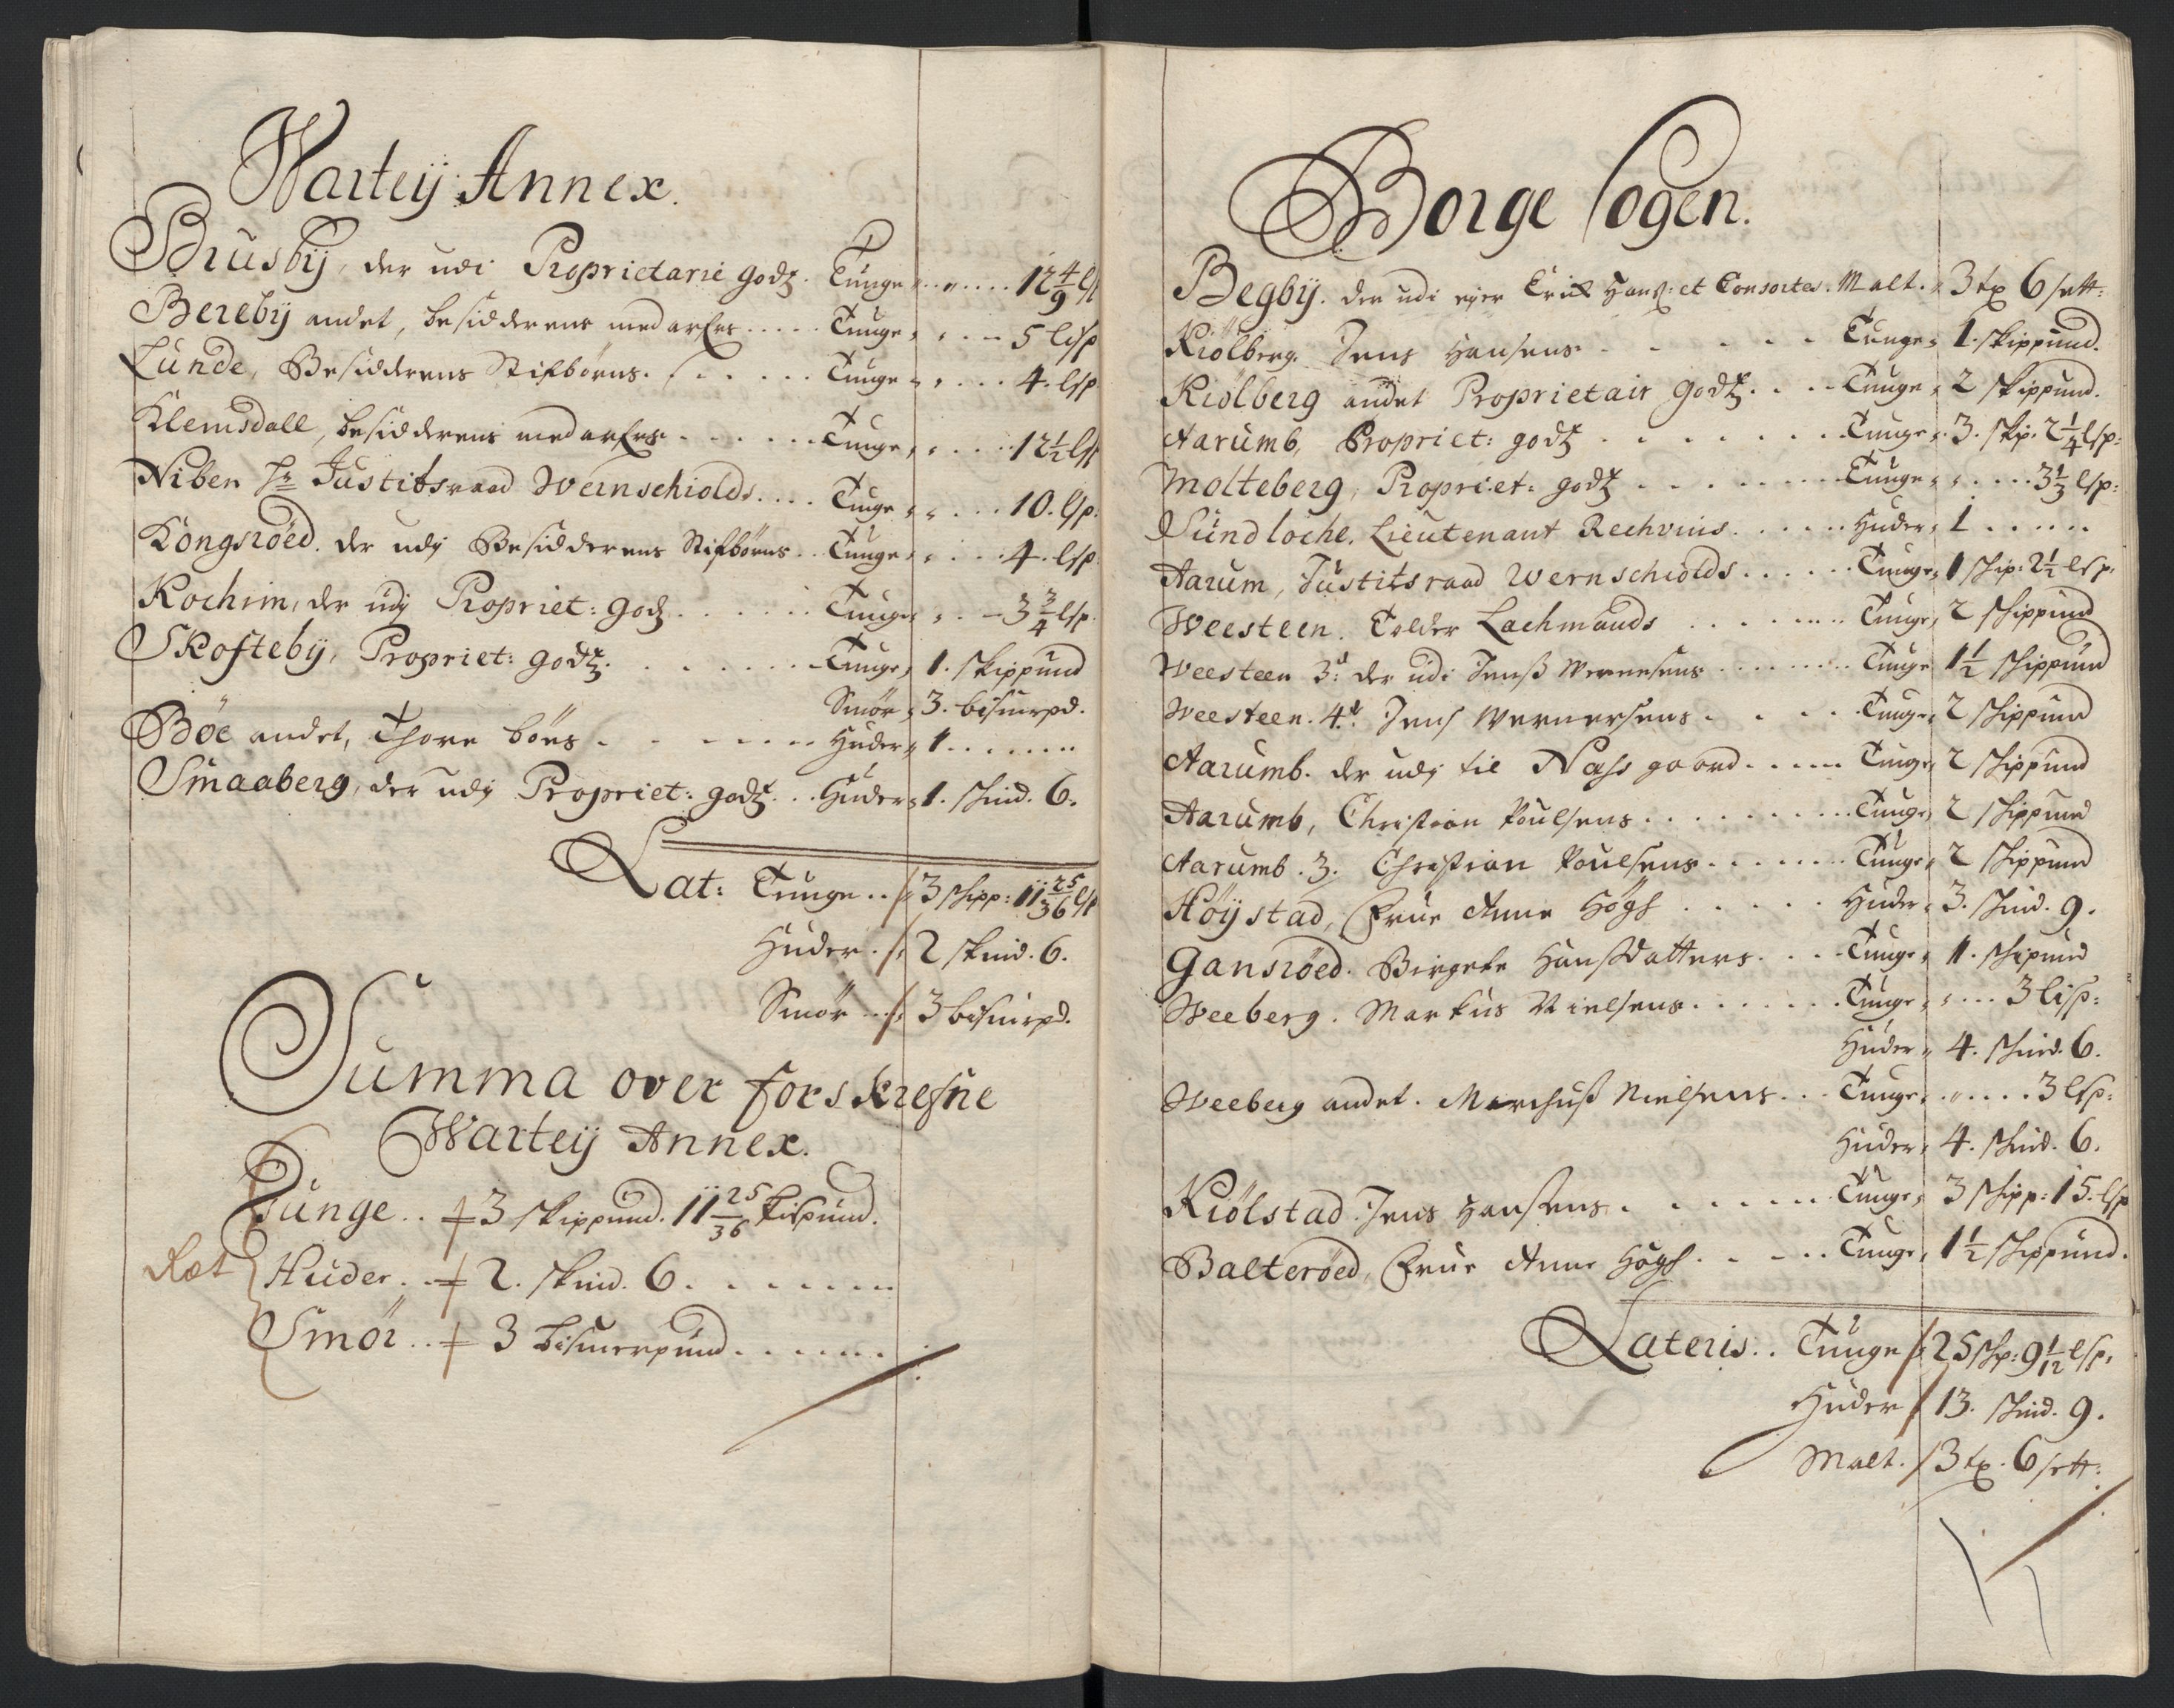 Warteij Annex.
Brusbÿ, der udi Proprietarie godz. Tunge „ „ .... 12 4/9 lß
Berebÿ andet, besidderens medarfes ..... Tunge „ „ .. - 5 lisp
Lunde, Besidderens Stifbörns. ..... Tunge „ „ .... 4. lsp
Klemsdall, besidderens medarfes ...... Tunge „ „ .... 12 1/2 lß
Niben Hr Justitsraad Wernschiolds .... Tunge „ „ .... 10. lsp.
Kongsröed. der udj Besidderens Stifbörns .. Tunge „ „ .... 4. lsp
Kochim, der udj Propriet: godz ...... Tunge „ . - 3 3/4 lsp.
Skoftebÿ, Propriet: godz. ....... Tunge „ 1. skippund
Smör „ 3. bismrpd.
Böe andet, Thore böes ....... Huder „ 1 .......
Smaaberg, der udj Propriet: godz ... Huder „ 1. skind. 6.
Lat: Tunge .. /: 3 skipp: 11 25/36 lß
Huder . /: 2 skind. 6.
Smör .. /: 3 bismrpd.
Summa over forskrefne
Warteij Annex.
Tunge .. 3 skippund. 11 25/36 Lispund.
Ret
Huder .. 2. skind. 6. .......
Smör .. 3 bismerpund ......
Borge Sogen.
Begbÿ. der udi ejer Erick Hans: et Consortes. Malt. „ 3 tp 6 sett:
Kiölberg. Jens Hansens. ...... Tunge „ 1. skippund.
Kiölberg andet Proprietair godz. ... Tunge „ 2 skippund.
Aarumb, Propriet: godz ....... Tunge „ 3. skp. 2 1/4 lsp:
Molteberg, Propriet: godz ........ Tunge „ „ .... 3 1/3 lsp:
Sundloche, Lieutenant Rechvins ...... Huder „ 1 .....
Aarum, Justitsraad Wernschiolds ...... Tunge „ 1 skip: 2 1/2 lsp.
Weesteen. Tolder Lachmands ....... Tunge „ 2 skippund
Weesteen 3: der udi Jenß Wernesens ........ Tunge 1 1/2 skippund
Weesteen. 4: Jens Wernersens ..... Tunge „ 2 skippund
Aarumb. der udj til Næss gaard ..... Tunge „ 2 skippund
Aarumb, Christian Poulsens ......... Tunge „ 2 skippund
Aarumb. 3. Christian Poulsens ....... Tunge „ 2 skippund
Höÿstad, Frue Anne Högh ..... Huder „ 3. skind. 9.
Gansröed. Birgete Hansdatters ... Tunge „ 11. skipund
Weeberg. Markus Nielsens ...... Tunge „ „ ... 3 lisp:
Huder „ 4. skind. 6.
Weeberg andet. Marchuß Nielsens ... Tunge „ „ .... 3 lsp:
Huder „ 4. skind. 6.
Kiölstad. Jens Hansens ...... Tunge „ 3 skipp: 15. lsp
Balteröed, Frue Anne Högh ..... Tunge „ 1 1/2 skippund.
Lateris .. Tunge /: 25 skp: 9 1/12 lsp.
Huder / 13. skind. 9.
Malt. / 3 tp. 6 sett: